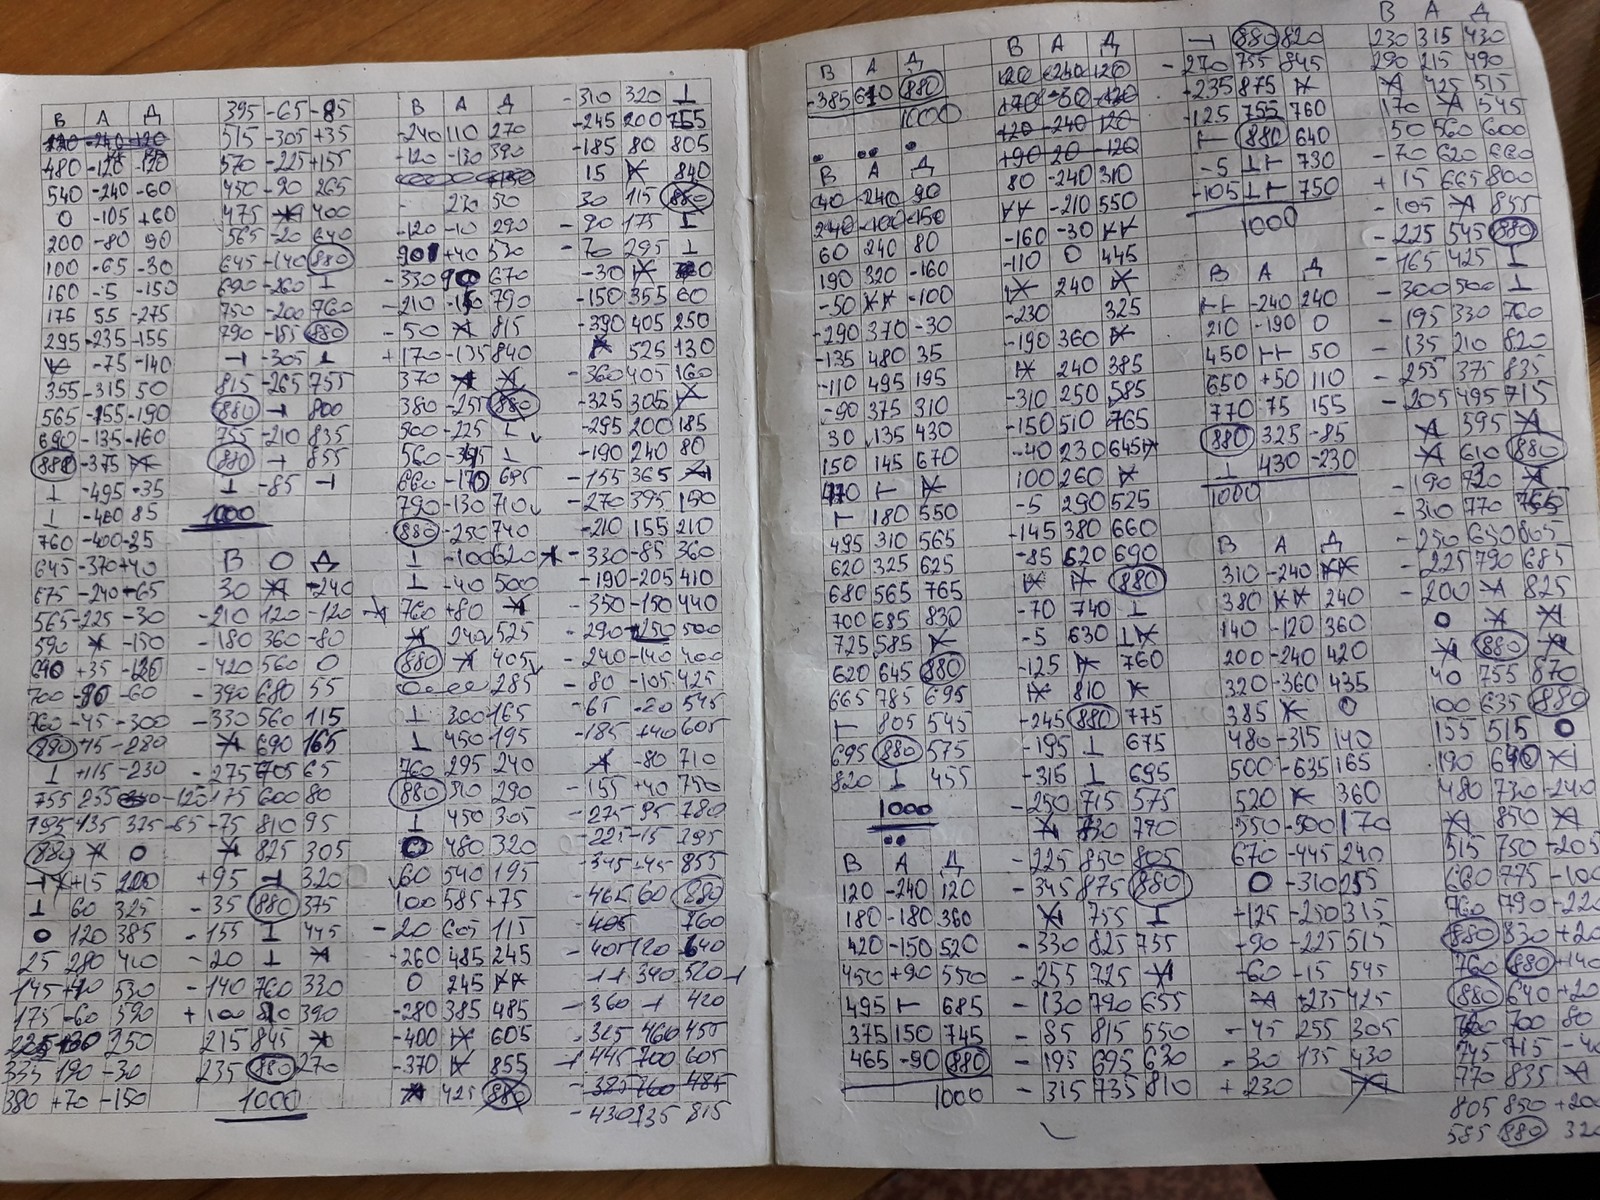 В А Д
480 -120 -120
540 -240 -60
0 -105 +60
200 -80 90
100 -65 -30
160 -5 -150
175 55 -275
295 -235 -155
-75 -140
355 -315 50
565 -155 -190
690 -135 -160
880 -375
⊥ -495 -35
⊥ 85
760 -400
645 -370 +40
675 -240 +65
565 -225 -30
590 -150
640 +35 -120
700 -60
760 -45 -300
880 +15 -280
⊥ +115 -230
755 255
795 435 325
880 0
+15 200
⊥ 60 325
0 120 385
25 280 410
145 +90 530
175 -60 590
250
335 190 -30
380 +70 -150
395 -65 -85
515 -305 +35
570 -225 +155
450 -90 265
475 400
565 -20 640
645 -140 880
690 -260 ⊥
750 -200 760
790 -155 880
-305 ⊥
815 -265 755
880 800
755 -210 835
880 855
⊥ -85
1000
В О Д
30 -240
-210 120 -120
-180 360 -80
-420 560 0
-390 680 55
-330 560 115
690 165
-275 705 65
175 600 80
-75 810 95
825 305
+95 320
-35 880 375
-155 ⊥ 445
-20 ⊥
-140 760 330
+100 390
215 845
235 880 270
1000
В А Д
-240 110 270
-120 -130 390
230 50
-120 -10 290
+40 530
-330 670
-210 790
-50 815
+170 -135 840
370
380 -255 880
500 -225 ⊥
560 ⊥
660 -170 695
790 -130 710
880 -250 740
⊥ -100 620
⊥ -40 500
760 +80
240 525
880 405
285
⊥ 300 165
⊥ 450 195
760 295 240
880 310 290
⊥ 450 305
0 480 320
60 540 195
100 585 +75
-20 605 115
-260 485 245
0 245
-280 385 485
-400 605
-370 855
425 880
-310 320 ⊥
-245 200 755
-185 80 805
15 840
30 115 880
-90 175 ⊥
-70 295 ⊥
-30
-150 355 60
-390 405 250
525 130
-360 405 160
-325 305
-295 200 185
-190 240 80
-155 365
-270 395 150
-210 155 210
-330 -85 360
-190 -205 410
-350 -150 440
-290 500
-240 -140 400
-80 -105 425
-65 -20 545
-185 +40 605
-80 710
-155 +40 750
-275 95 780
-225 -15 795
-345 -45 855
-465 60 880
760
-405 120 640
340 520
-360 420
-325 460 455
-445 700 605
-385 760 485
-430 735 815
В А Д
-385 610 880
1000
В А Д
40 -240 90
240 -100 -150
60 240 80
190 320 -160
-50 -100
-290 370 -30
-135 480 35
-110 495 195
-90 375 310
30 135 430
150 145 670
180 550
495 310 565
620 325 625
680 565 765
700 685 830
725 585
620 645 880
665 785 695
805 545
695 880 575
820 ⊥ 455
1000
В А Д
120 -240 120
180 -180 360
420 -150 520
450 +90 550
495 685
375 150 745
465 -90 880
1000
В А Д
120 -240 120
120 -240 120
+90 20 -120
80 -240 310
-210 550
-160 -30
-110 0 445
240
-230 325
-190 360
240 385
-310 250 585
-150 510 765
-40 230 645
100 260
-5 290 525
-145 380 660
-85 620 690
880
-70 740 ⊥
-5 630
-125 760
810
-245 880 775
-195 ⊥ 675
-315 ⊥ 695
-250 715 575
730 790
-225 850 805
-345 875 880
755 ⊥
-330 825 755
-255 725
-130 790 655
-85 815 550
-195 695 630
-315 735 810
880 820
-270 755 845
-235 875
-125 755 760
880 640
-5 730
-105 750
1000
В А Д
-240 240
210 -190 0
450 50
650 +50 110
770 75 155
880 325 -85
⊥ 430 -230
1000
В А Д
310 -240
380 240
140 -120 360
200 -240 420
320 -360 435
385 0
480 -315 140
500 -635 165
520 360
550 -500 170
670 -445 240
0 -310 255
-125 -250 315
-90 -225 515
-60 -15 545
+235 425
-45 255 305
-30 135 430
+230
В А Д
230 315 430
290 215 490
425 515
170 545
50 560 600
-70 620 660
+15 665 800
-105 855
-225 545 880
-165 425 ⊥
-300 500 ⊥
-195 330 760
-135 210 820
-255 375 835
-205 495 715
595
610 880
-190 720
-310 770 755
-250 650 865
-225 790 685
-200 825
0
880
40 755 870
100 635 880
155 515 0
190 690
480 730 -240
850
515 750 +205
660 775 -100
760 790 -220
880 830 +20
760 880 +140
880 640 +20
700 80
745 715
770 835
805 850 +200
585 880 320